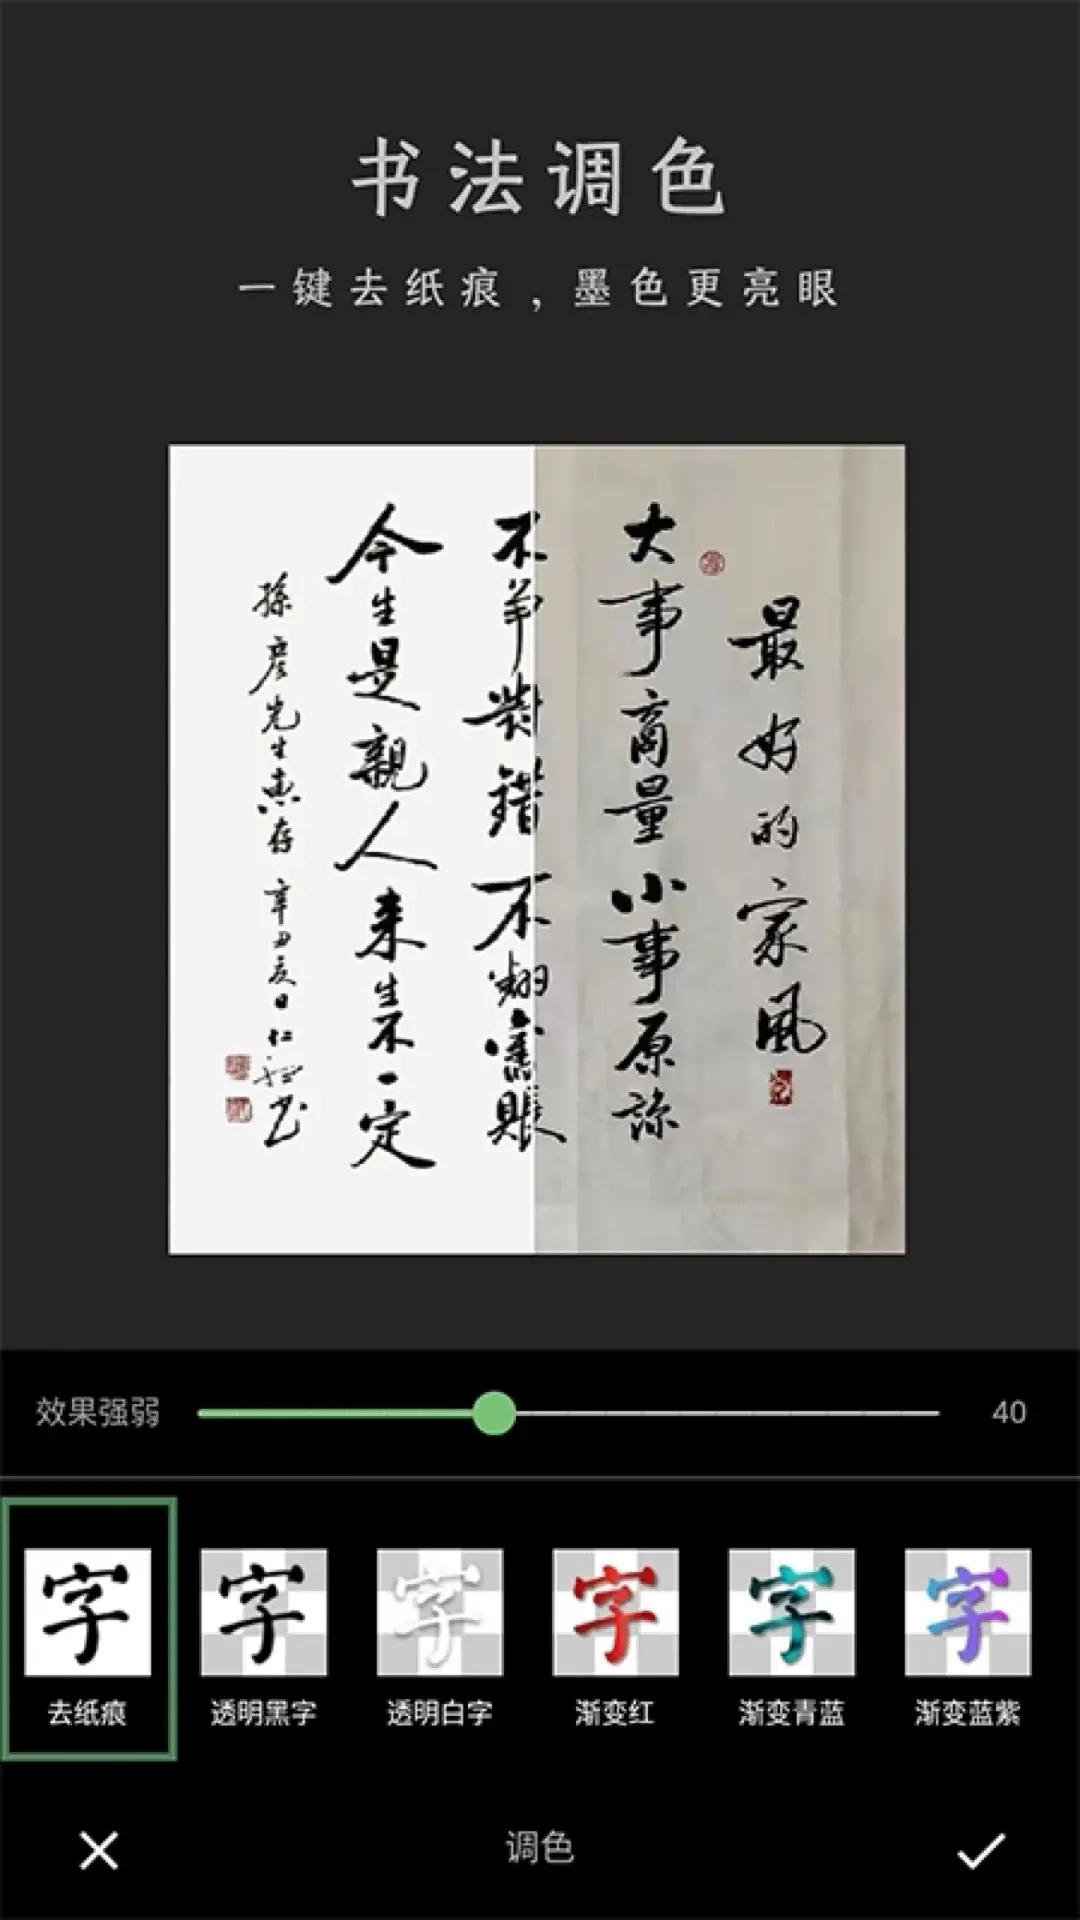 书法调色
一键去纸痕，墨色更亮眼
最好的家風
大事商量小事原諒
不爭對錯不翻舊賬
今生是親人来生不一定
孫彦先生惠存 辛丑
效果强弱 40
字 字 字 字 字 字
去纸痕 透明黑字 透明白字 渐变红 渐变青蓝 渐变蓝紫
调色